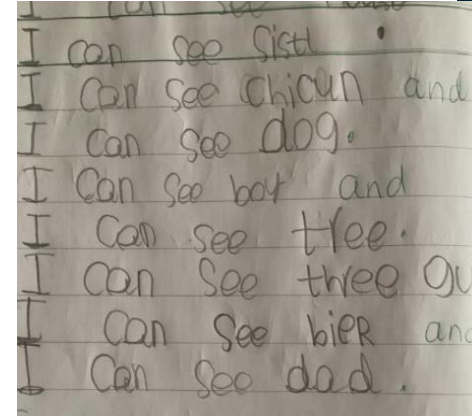 I can see
I can see Sistl .
I Can See Chicun and
I Can See dog.
I Can See boy and
I Can see tree.
I Can See three gu
I Can See bieR and
I Can See dad.